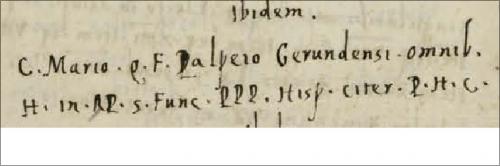 Ibidem.
C. Mario. Q. F. Palpeio Gerundensi. omnib.
H. in. RP. s. Func. PPP. Hisp. citer. P. H. C.